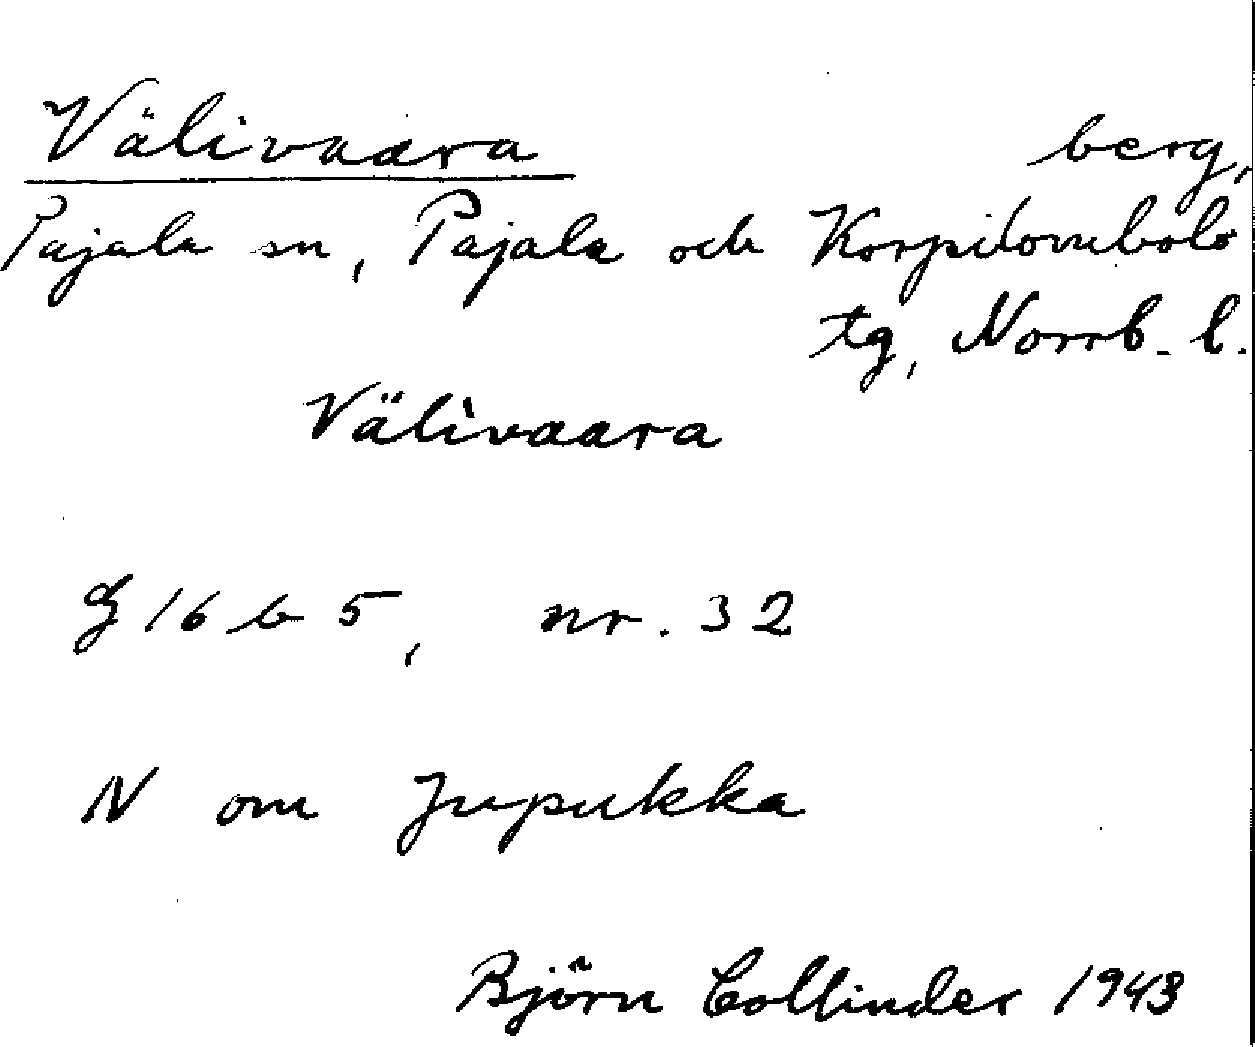 Välivaara berg,
Pajala sn, Pajala och Korpilombolo
tg, Norrb. l.
Välivaara
G 16 b 5, nr. 32
N om Jupukka
Björn Collinder 1943